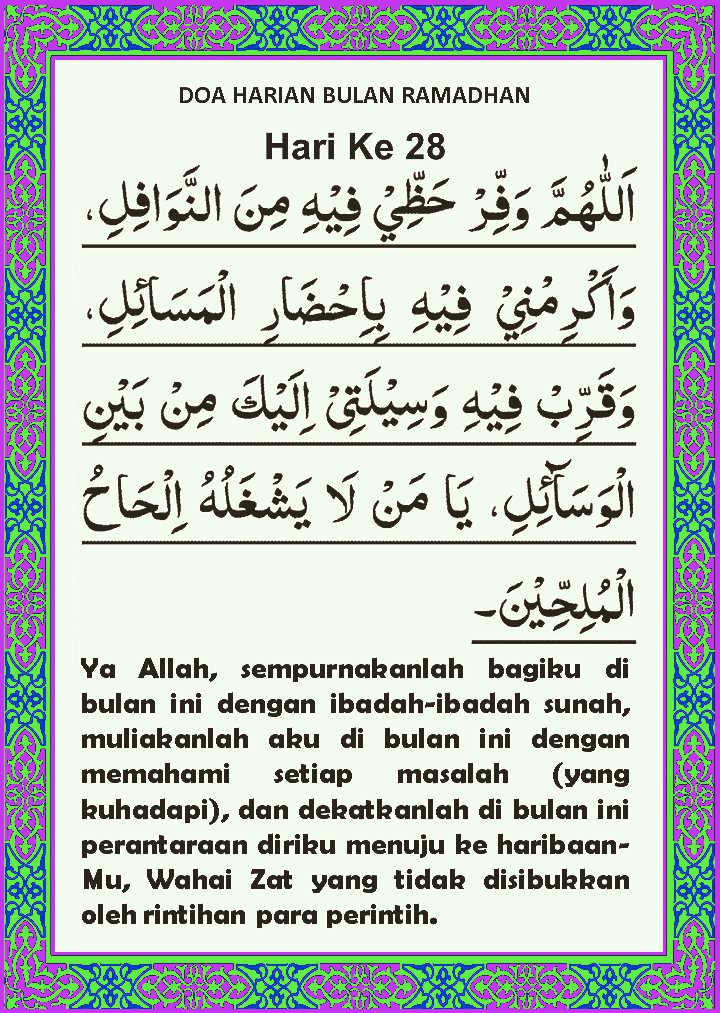 DOA HARIAN BULAN RAMADHAN
Hari Ke 28
اَللّٰهُمَّ وَفِّرْ حَظِّيْ فِيْهِ مِنَ النَّوَافِلِ،
وَأَكْرِمْنِيْ فِيْهِ بِاِحْضَارِ الْمَسَائِلِ،
وَقَرِّبْ فِيْهِ وَسِيْلَتِىْ اِلَيْكَ مِنْ بَيْنِ
الْوَسَآئِلِ، يَا مَنْ لَا يَشْغَلُهُ اِلْحَاحُ
الْمُلِحِّيْنَ۔
Ya Allah, sempurnakanlah bagiku di
bulan ini dengan ibadah-ibadah sunah,
muliakanlah aku di bulan ini dengan
memahami setiap masalah (yang
kuhadapi), dan dekatkanlah di bulan ini
perantaraan diriku menuju ke haribaan-
Mu, Wahai Zat yang tidak disibukkan
oleh rintihan para perintih.